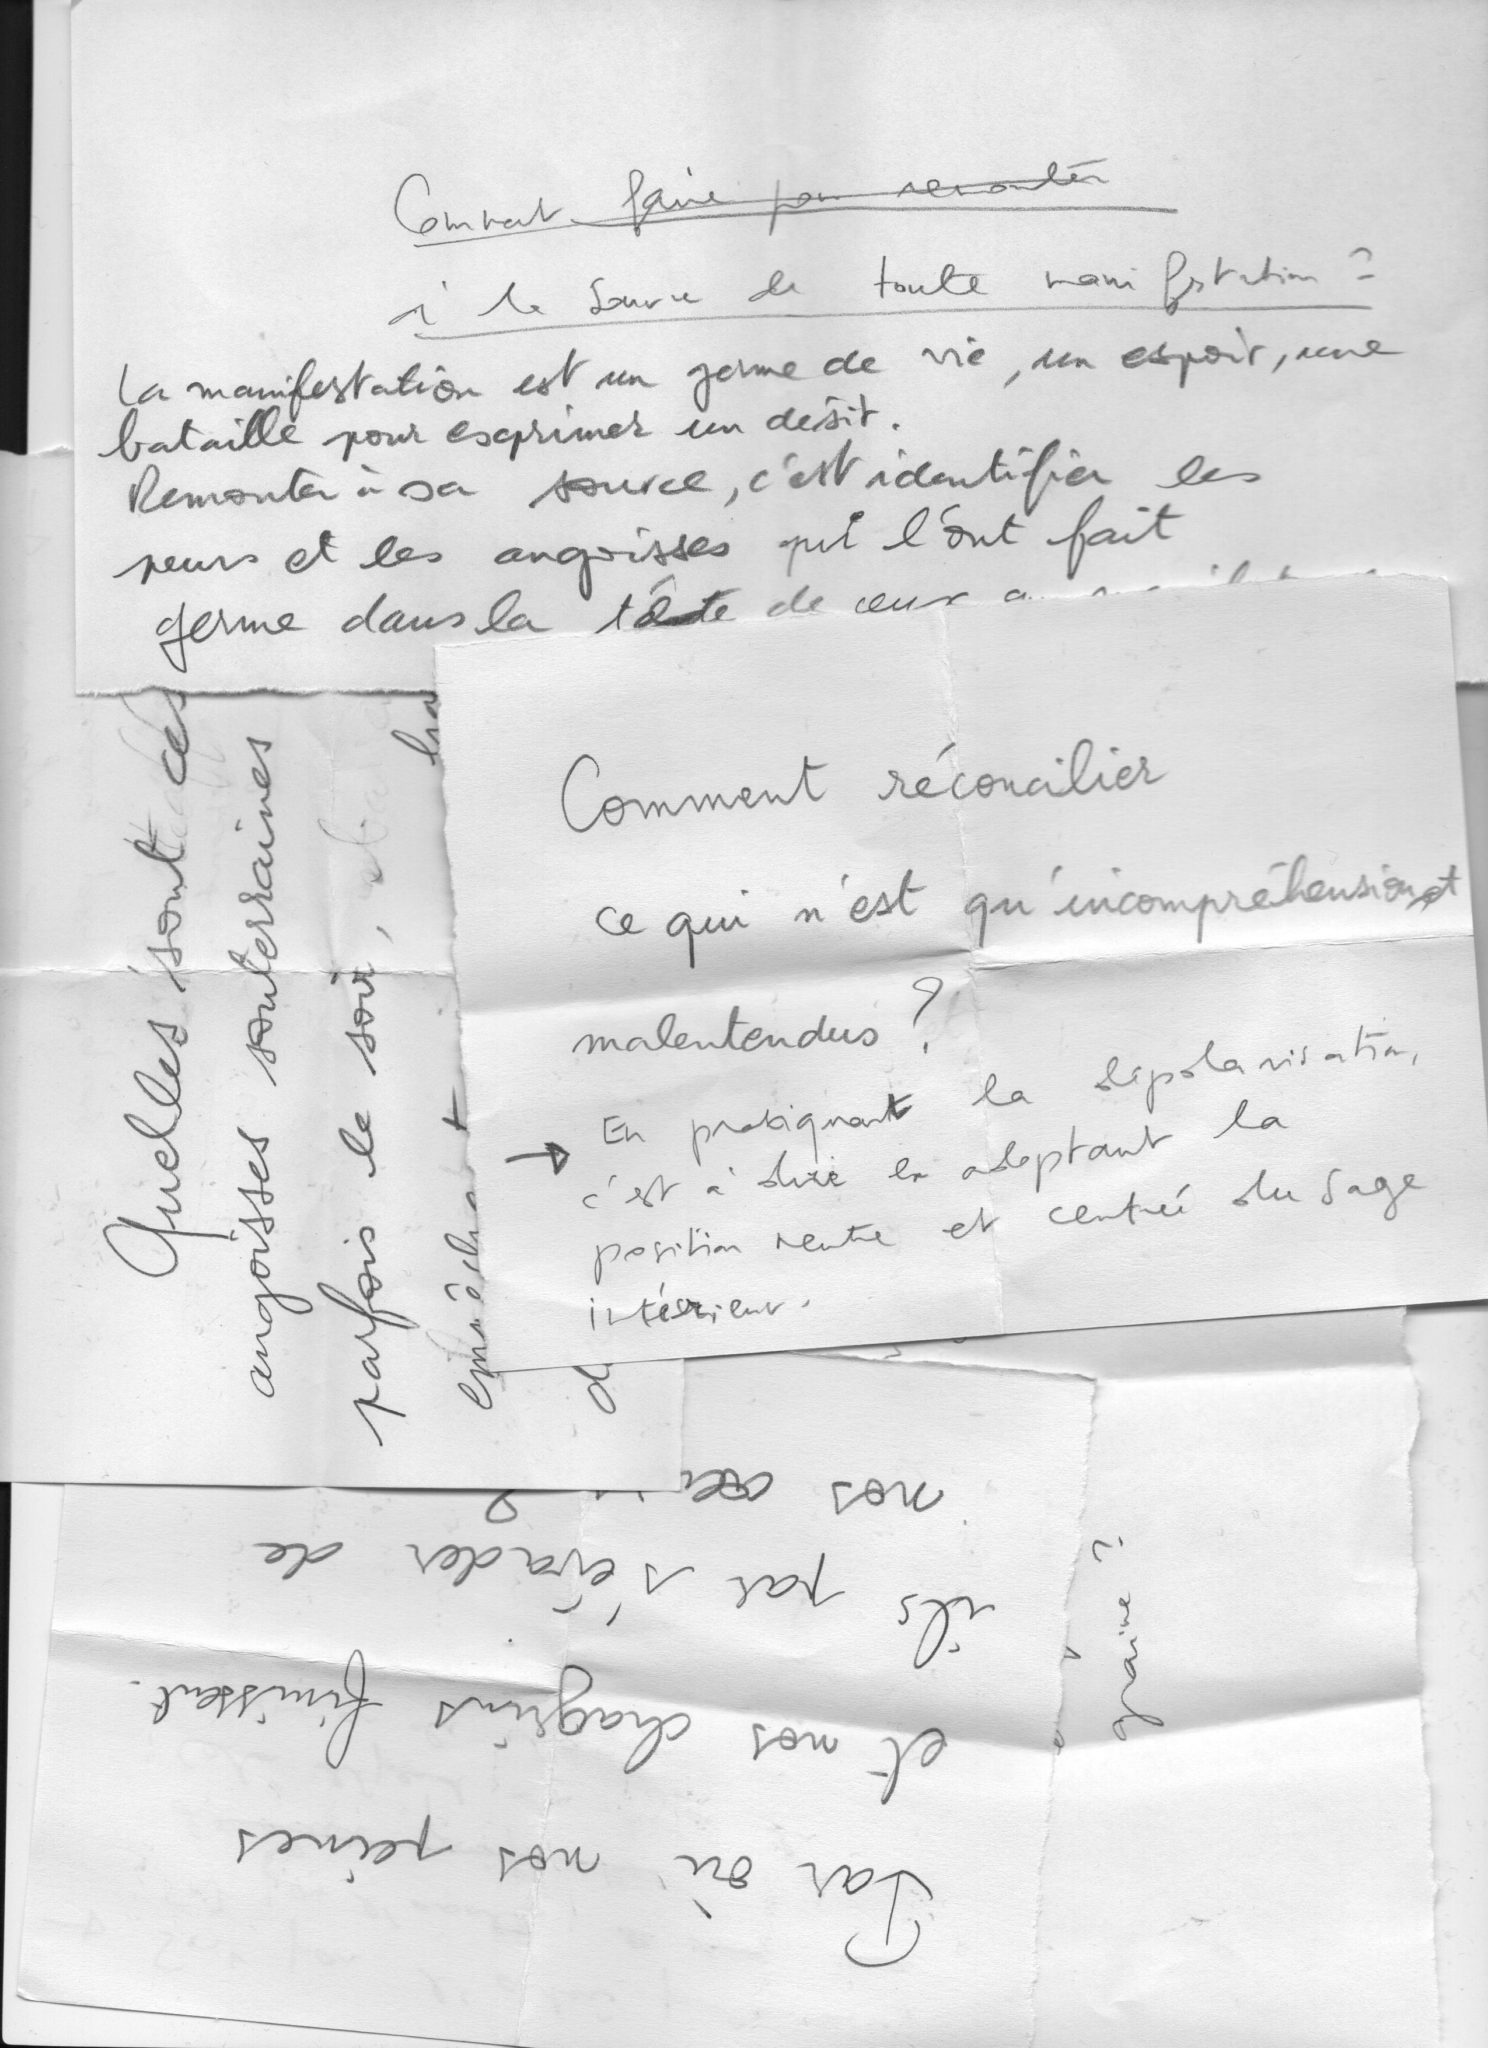 Comment faire pour remonter
à la source de toute manifestation ?
La manifestation est un germe de vie, un espoir, une
bataille pour exprimer un désir.
Remonter à sa source, c'est identifier les
peurs et les angoisses qui l'ont fait
germe dans la tête de ceux
Comment réconcilier
ce qui n'est qu'incompréhension et
malentendus ?
→ En pratiquant la dépolarisation,
c'est à dire en adoptant la
position neutre et centrée du sage
intérieur.
Quelles sont ces
angoisses souterraines
parfois le soir,
Par où nos peines
et nos chagrins finissent-
ils par s'évader de
nos
graine ?